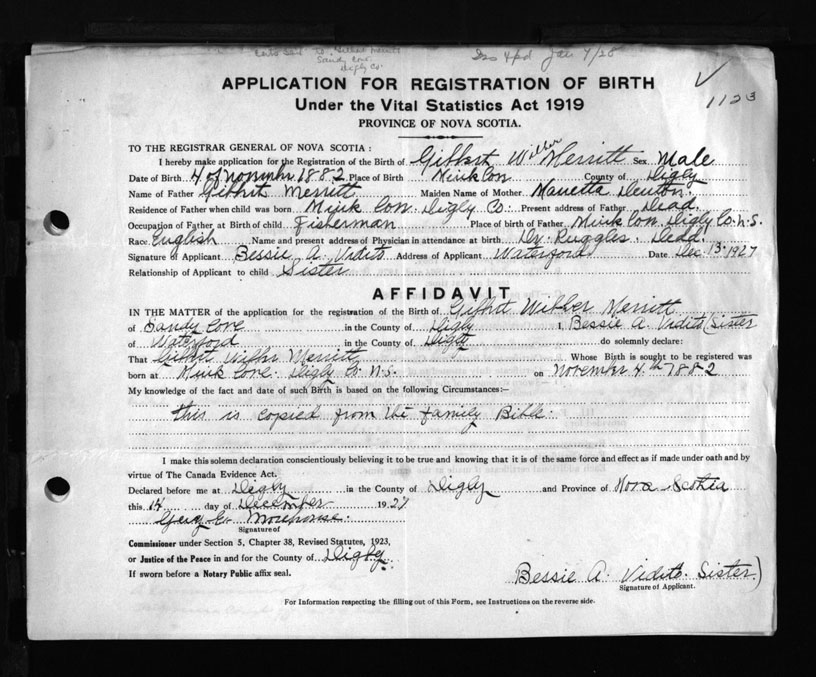 Gilbert Merritt
Sandy Cove
Digby Co.
Jan 4/28
1123
APPLICATION FOR REGISTRATION OF BIRTH
Under the Vital Statistics Act 1919
PROVINCE OF NOVA SCOTIA.
TO THE REGISTRAR GENERAL OF NOVA SCOTIA :
I hereby make application for the Registration of the Birth of Gilbert Wilber Merritt Sex Male
Date of Birth 4 of 1882 Place of Birth Mink Cov County of Digby
Name of Father Gilbert Merritt Maiden Name of Mother Denton
Residence of Father when child was born Mink Cov. Digby Co. Present address of Father Dead.
Occupation of Father at Birth of child Fisherman Place of birth of Father Mink Cov Digby Co. N.S.
Race English Name and present address of Physician in attendance at birth Dr. Ruggles. Dead.
Signature of Applicant Bessie A. Vidito Address of Applicant Waterford Date Dec. 13. 1927
Relationship of Applicant to child Sister
AFFIDAVIT
IN THE MATTER of the application for the registration of the Birth of Gilbert Wilber Merritt
of Sandy Cove in the County of Digby I, Bessie A. Vidito (Sister
of Waterford in the County of Digby do solemnly declare:
That Gilbert Wilbr Merritt Whose Birth is sought to be registered was
born at Mink Cove. Digby Co. N.S. on November 4th 1882
My knowledge of the fact and date of such Birth is based on the following Circumstances:—
this is copied from the family Bible.
I make this solemn declaration conscientiously believing it to be true and knowing that it is of the same force and effect as if made under oath and by
virtue of The Canada Evidence Act.
Declared before me at Digby in the County of Digby and Province of Nova Scotia
this 14 day of December 1927
Morehouse.
Signature of
Commissioner under Section 5, Chapter 38, Revised Statutes, 1923,
or Justice of the Peace in and for the County of Digby
If sworn before a Notary Public affix seal.
Bessie A. Vidito. Sister)
Signature of Applicant.
For Information respecting the filling out of this Form, see Instructions on the reverse side.